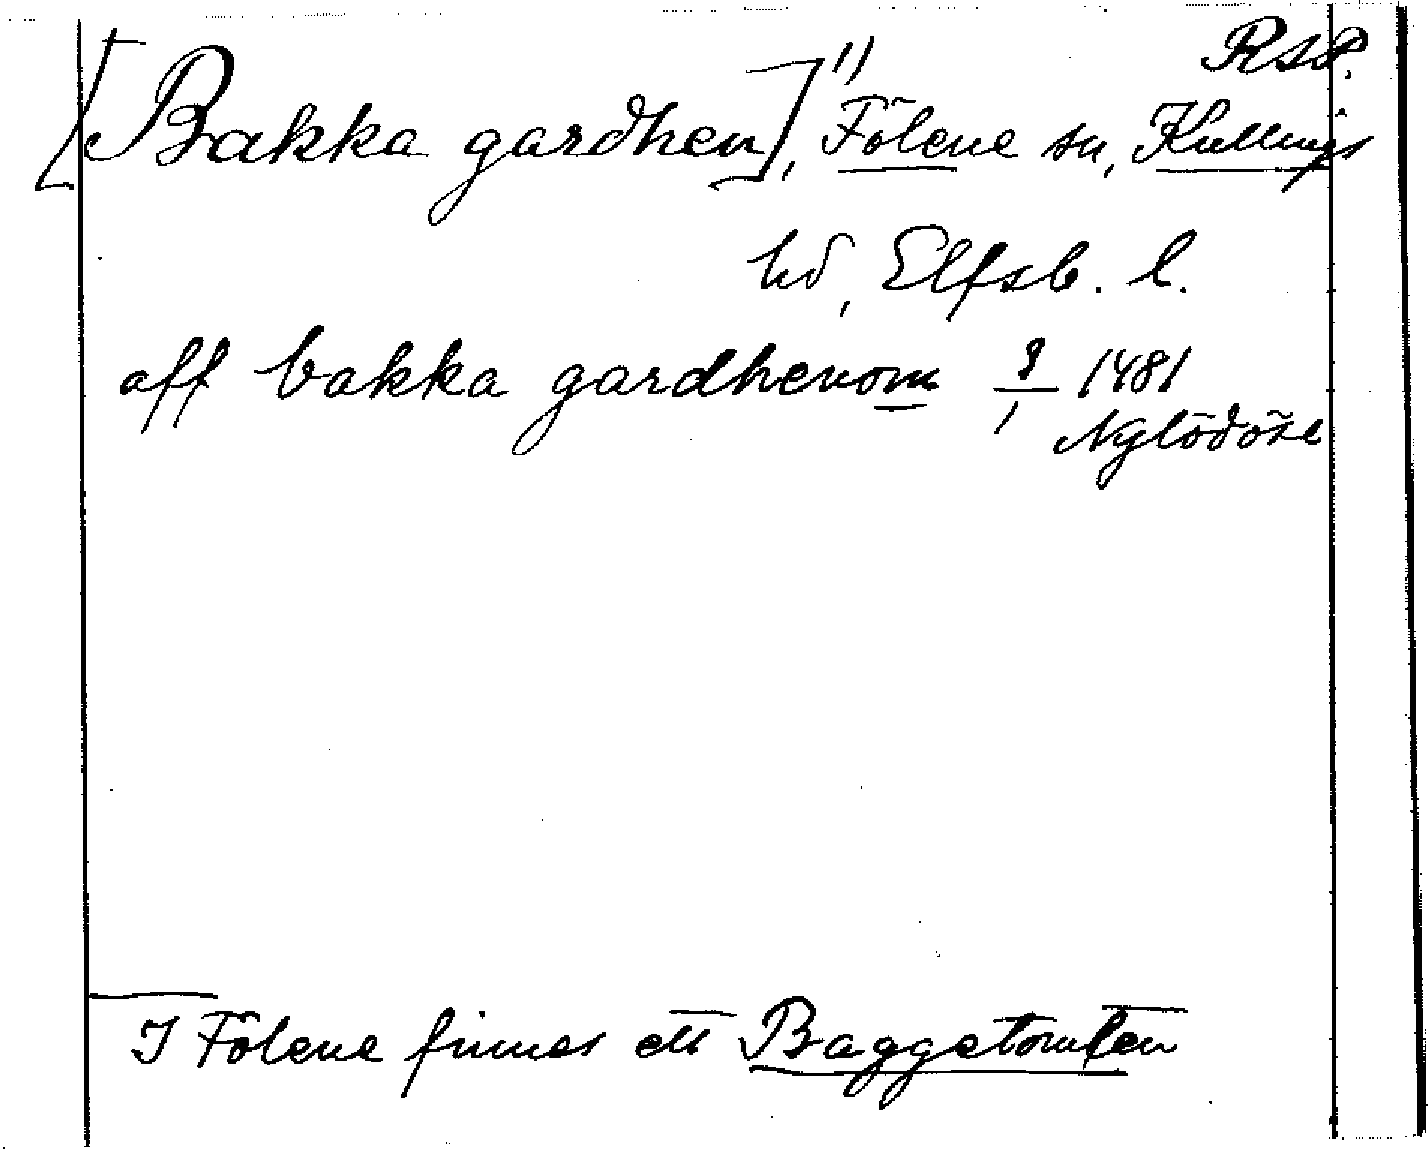 RAP.
[Bakka gardhen]¹⁾, Fölene sn, Kullings
hd, Elfsb. l.
aff bakka gardhenom 9/1 1481
Nylödöse
I Fölene finnes ett Baggetomten